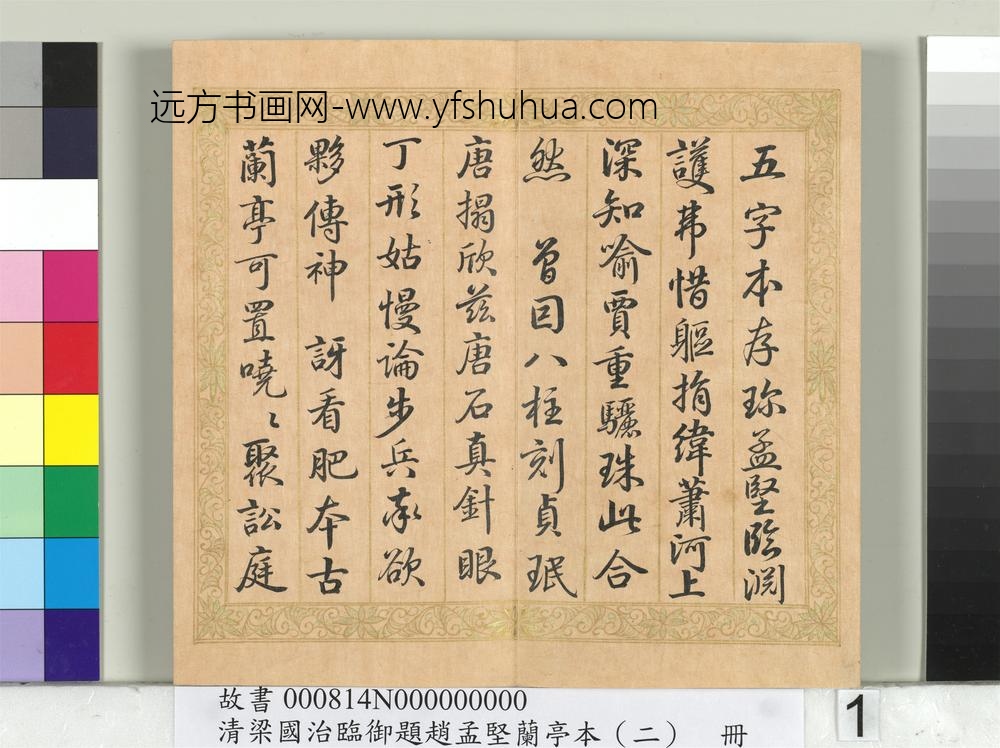 远方书画网-www.yfshuhua.com
五字本存珎孟堅臨渊
護茀惜軀捐緯蕭河上
深知喻賈重驪珠此合
然 曾因八柱刻貞珉
唐搨欣茲唐石真針眼
丁形姑慢論步兵承欲
夥傳神 訝看肥本古
蘭亭可置嘵〻聚訟庭
故書 000814N000000000
清梁國治臨御題趙孟堅蘭亭本（二） 冊
1